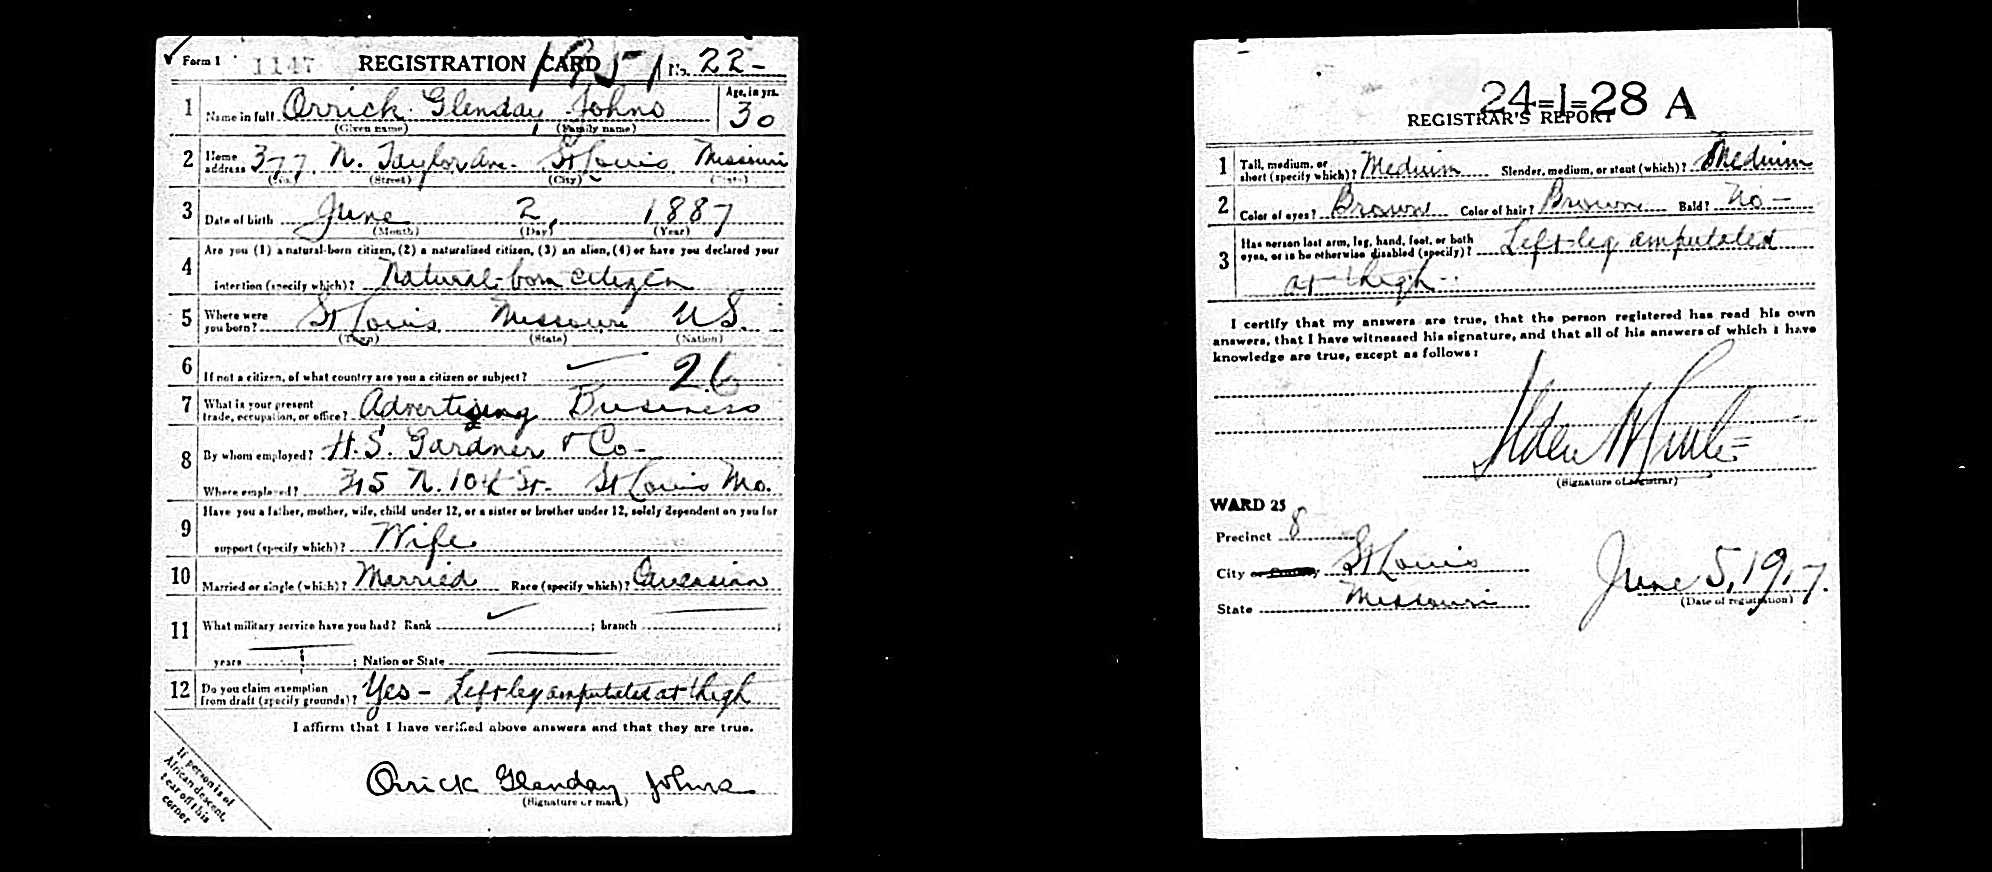 Form 1 1147 REGISTRATION CARD 1951 No. 22-
1 Name in full Orrick Glenday Johns Age, in yrs. 30
(Given name) (Family name)
2 Home address 377 N. Taylor Ave. St Louis Missouri
(No.) (Street) (City) (State)
3 Date of birth June 2, 1887
(Month) (Day) (Year)
4 Are you (1) a natural-born citizen, (2) a naturalized citizen, (3) an alien, (4) or have you declared your
intention (specify which)? Natural-born citizen
5 Where were you born? St Louis Missouri U S.
(Town) (State) (Nation)
6 If not a citizen, of what country are you a citizen or subject? 26
7 What is your present trade, occupation, or office? Advertising Business
8 By whom employed? H. S. Gardner & Co-
Where employed? 315 N. 10th St- St Louis Mo.
9 Have you a father, mother, wife, child under 12, or a sister or brother under 12, solely dependent on you for
support (specify which)? Wife
10 Married or single (which)? Married Race (specify which)? Caucasian
11 What military service have you had? Rank ; branch ;
years ; Nation or State
12 Do you claim exemption from draft (specify grounds)? Yes - Left leg amputated at thigh
I affirm that I have verified above answers and that they are true.
Orrick Glenday Johns
(Signature or mark)
If person is of
African descent,
tear off this
corner
24=1=28 A
REGISTRAR'S REPORT
1 Tall, medium, or short (specify which)? Medium Slender, medium, or stout (which)? Medium
2 Color of eyes? Brown Color of hair? Brown Bald? No -
3 Has person lost arm, leg, hand, foot, or both eyes, or is he otherwise disabled (specify)? Left leg amputated
at thigh
I certify that my answers are true, that the person registered has read his own
answers, that I have witnessed his signature, and that all of his answers of which I have
knowledge are true, except as follows:
(Signature of registrar)
WARD 25
Precinct 8
City or County St Louis
State Missouri
June 5, 1917.
(Date of registration)